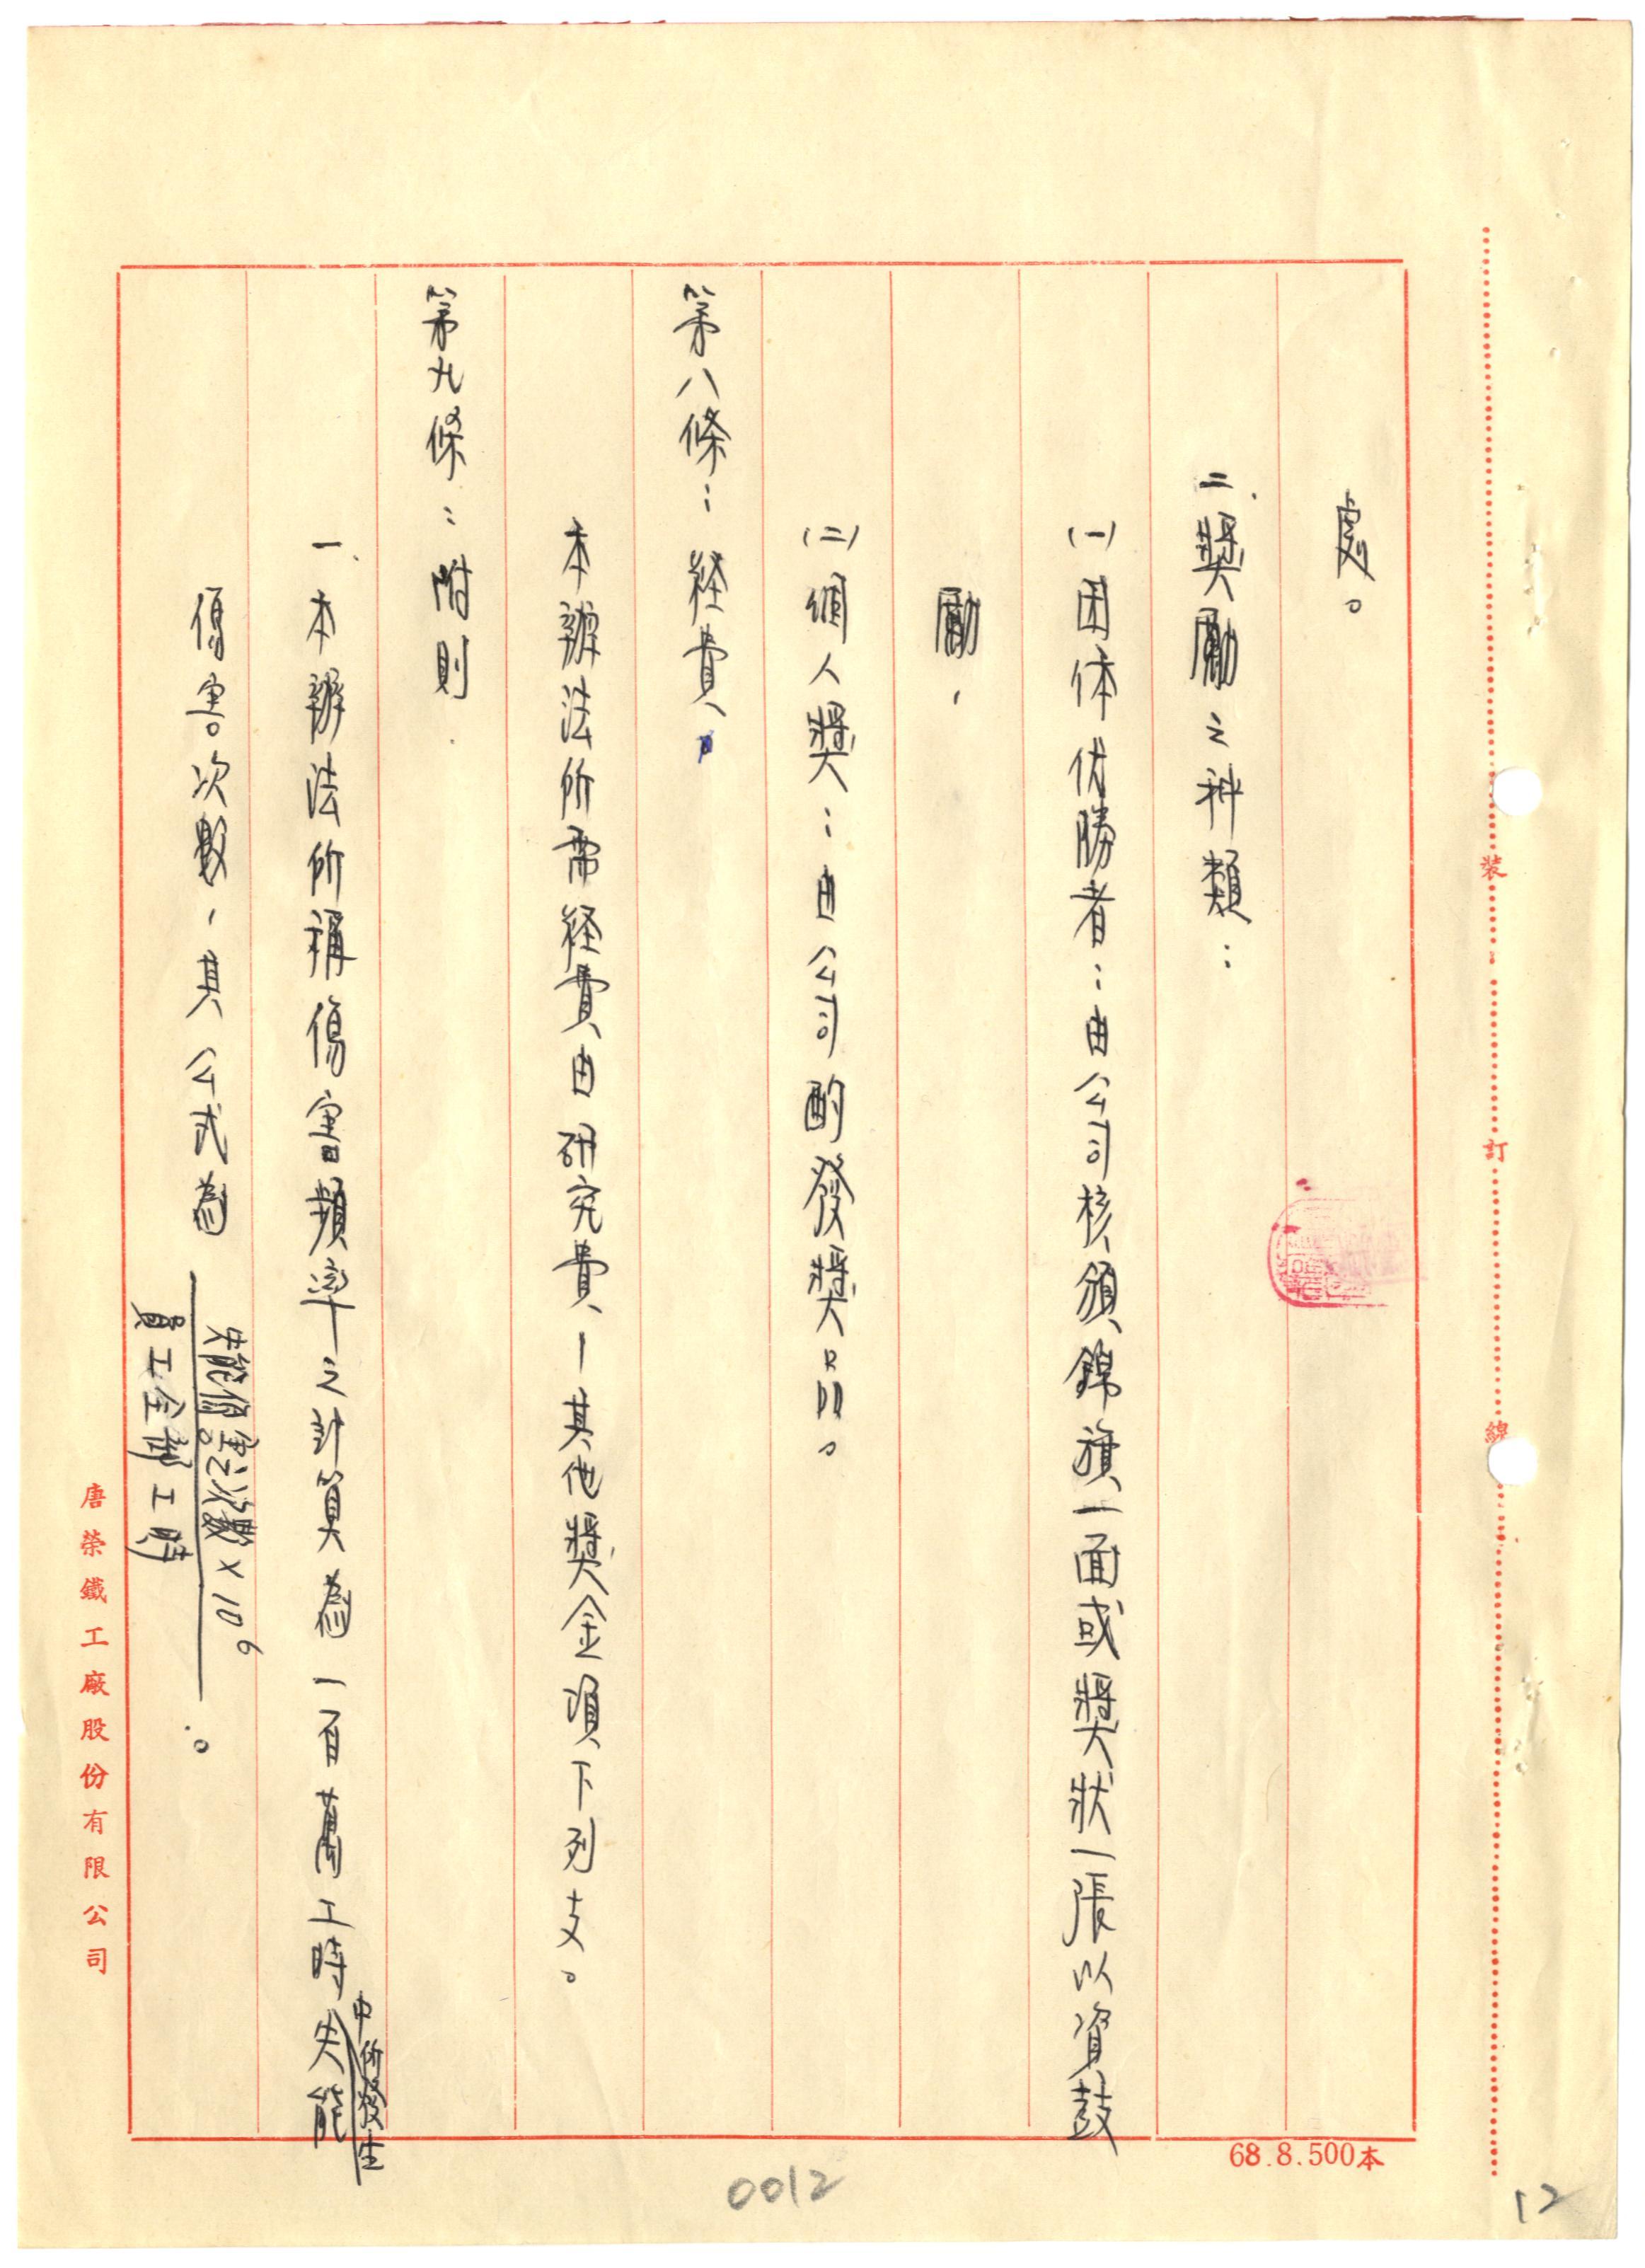 處。
二、獎勵之种類：
(一)团体优勝者：由公司核頒錦旗一面或獎狀一張以資鼓
勵，
(二)個人獎：由公司酌發獎品。
第八條：経費。
本辦法所需経費由研究費—其他獎金項下列支。
第九條：附則
一、本辦法所稱傷害頻率之計算為一百萬工時中所發生失能
傷害次數，其公式為 失能傷害次數×10⁶ / 員工全部工時 。
唐榮鐵工廠股份有限公司
裝
訂
線
68.8.500本
0012
12